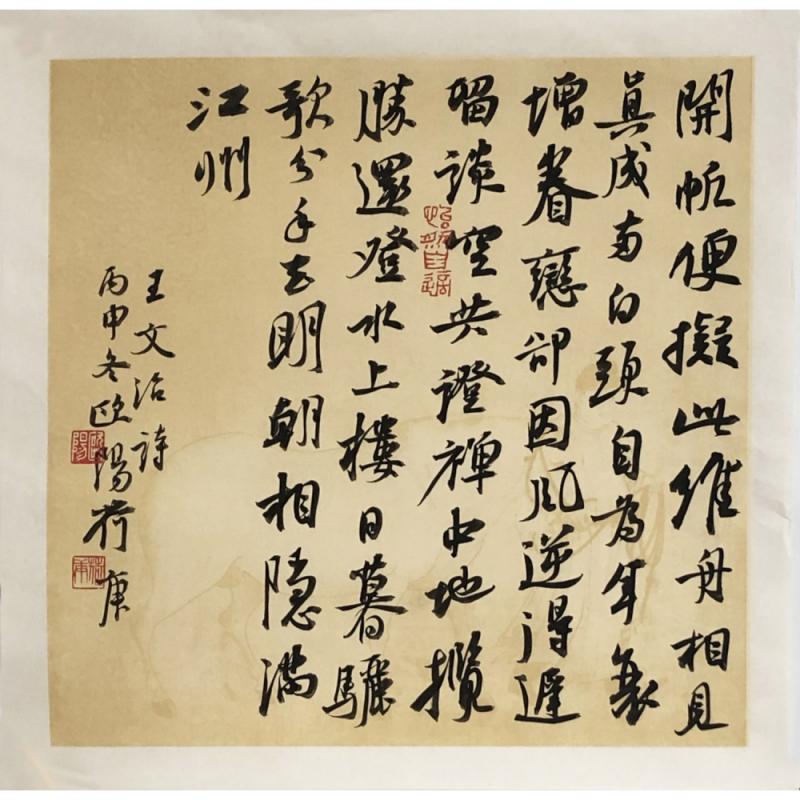 開帆便擬此維舟相見
眞成兩白頭自為年衰
增眷戀卻因風逆得遲
留談空共證禪中地攬
勝還燈水上樓日暮驪
歌分手去明朝相隱滿
江州
王文治詩
丙申冬歐陽荷庚
怡然自適
歐陽
荷庚